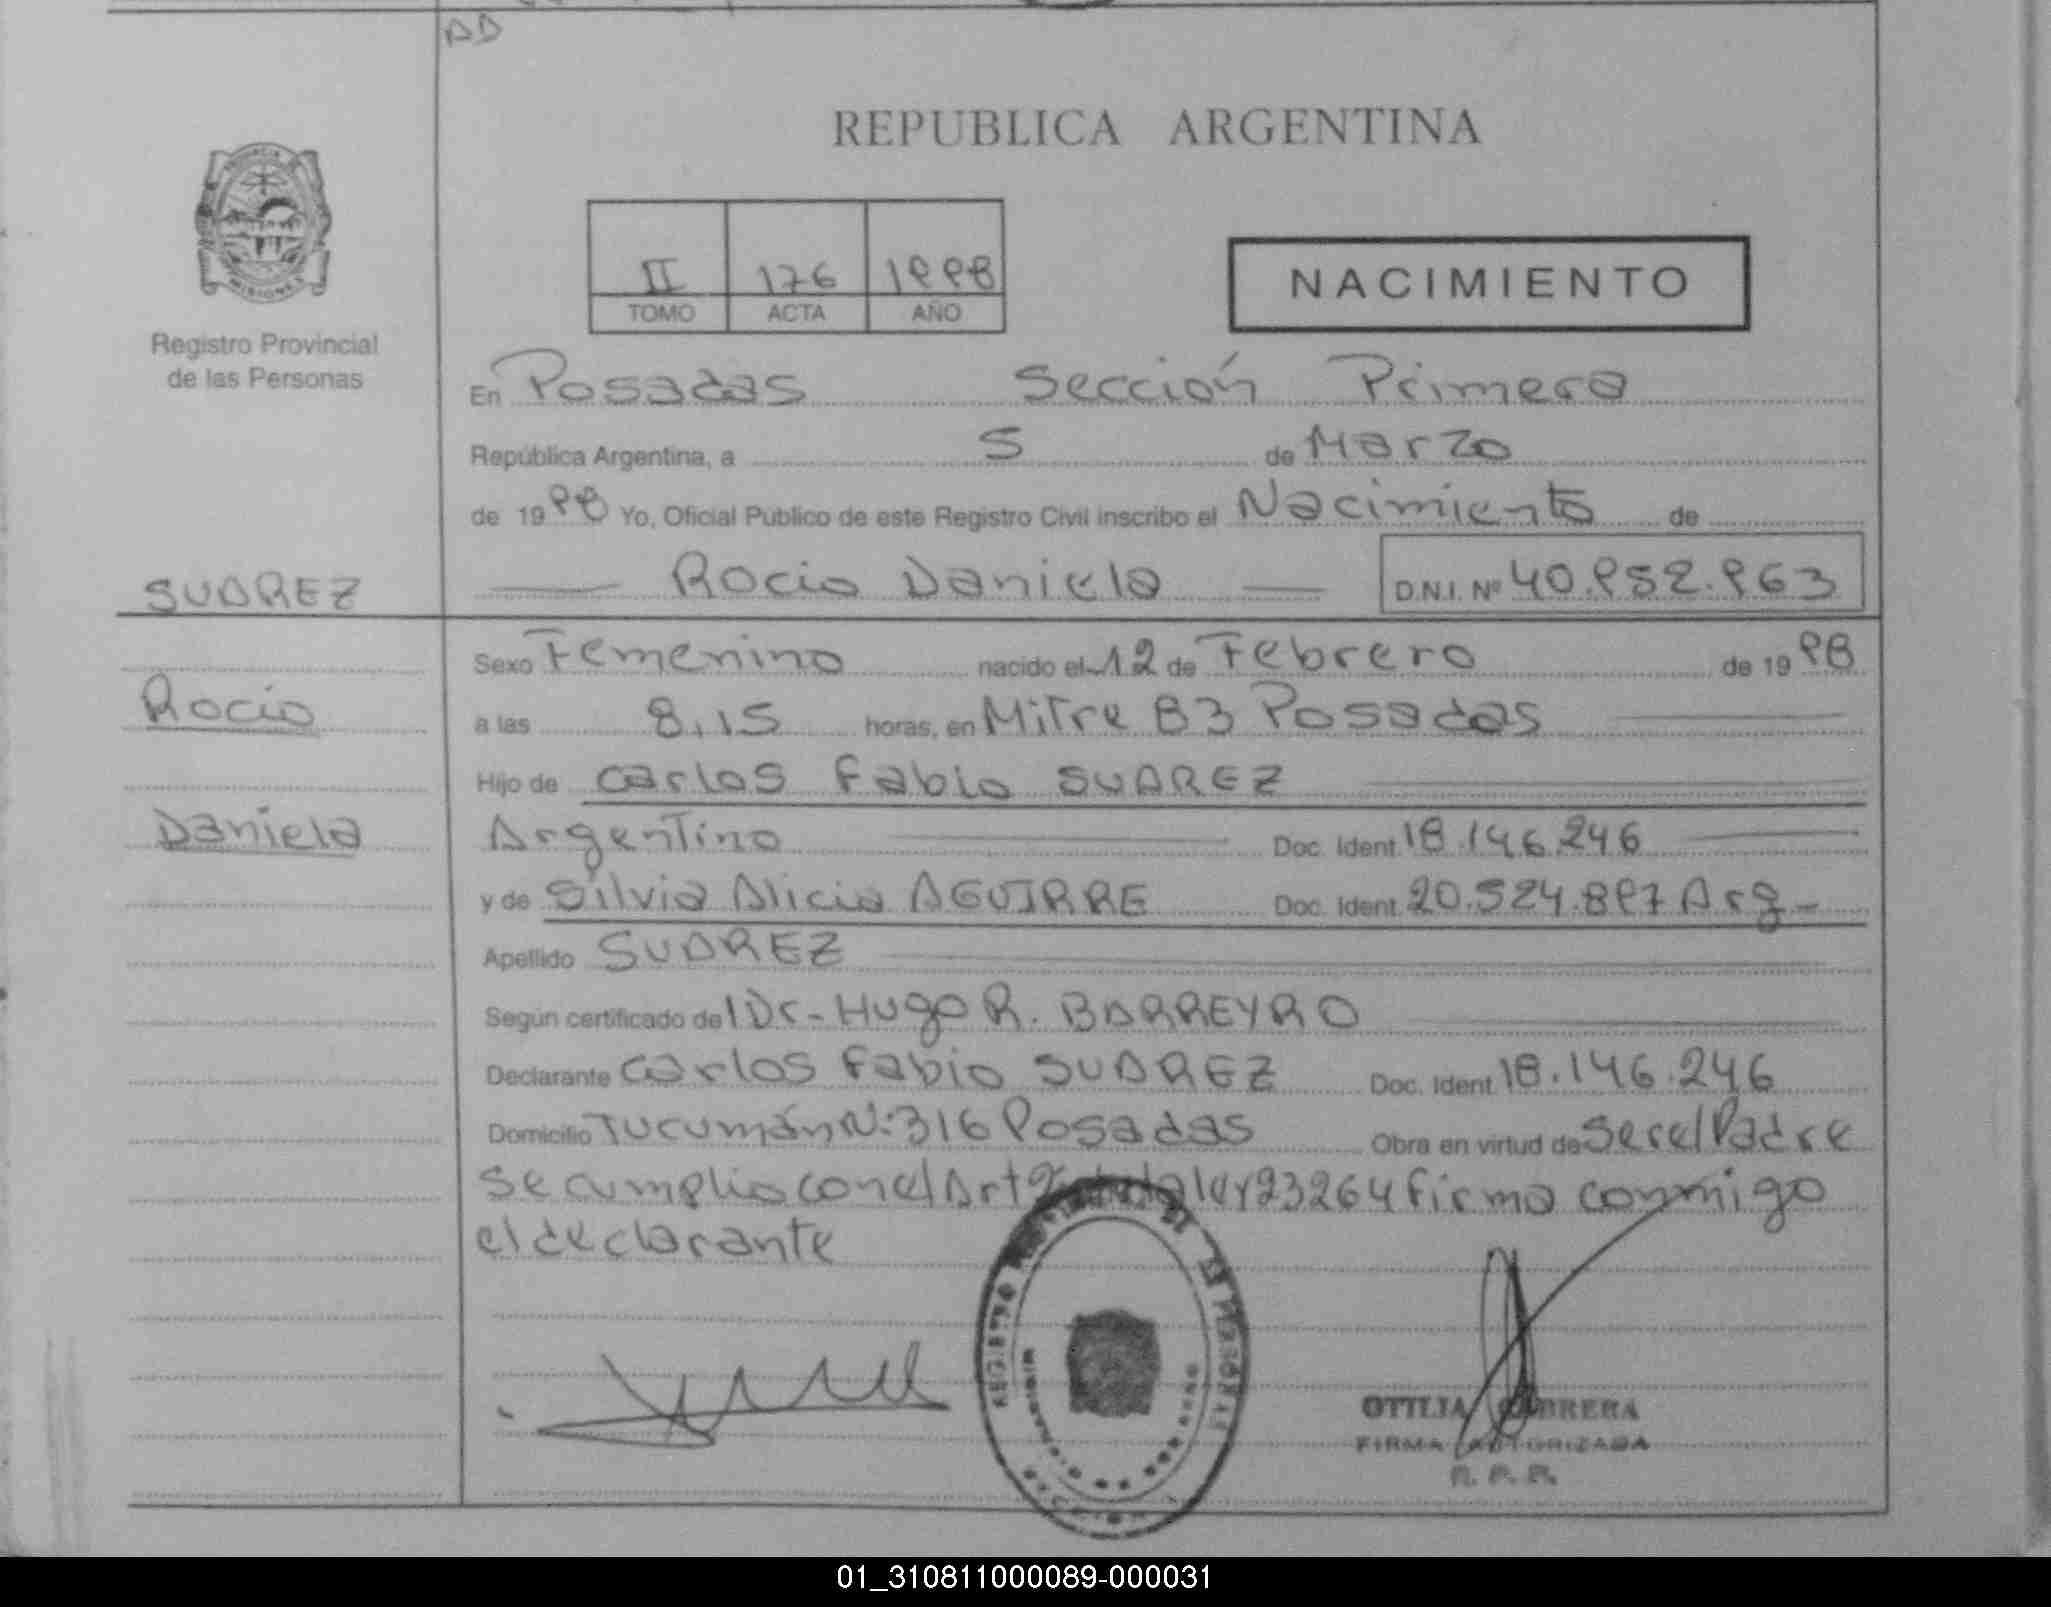 AD
REPUBLICA ARGENTINA
II 176 1998
TOMO ACTA AÑO
NACIMIENTO
PROVINCIA
MISIONES
Registro Provincial
de las Personas
En Posadas Sección Primera
República Argentina, a 5 de Marzo
de 1998 Yo, Oficial Publico de este Registro Civil inscribo el Nacimiento de
SUAREZ
Rocio Daniela D.N.I. Nº 40.952.963
Sexo Femenino nacido el 12 de Febrero de 1998
Rocio
a las 8,15 horas, en Mitre 83 Posadas
Hijo de Carlos Fabio SUAREZ
Daniela
Argentino Doc. Ident. 18.146.246
y de Silvia Alicia AGUIRRE Doc. Ident. 20.524.897 Arg-
Apellido SUAREZ
Según certificado del Dr- Hugo R. BARREYRO
Declarante Carlos Fabio SUAREZ Doc. Ident. 18.146.246
Domicilio Tucumán Nº 316 Posadas Obra en virtud de Ser el Padre
se cumplio con el Art la ley 23264 firma conmigo
el declarante
REGISTRO DE LAS PERSONAS
OTTILIA CABRERA
FIRMA AUTORIZADA
R. P. P.
01_310811000089-000031